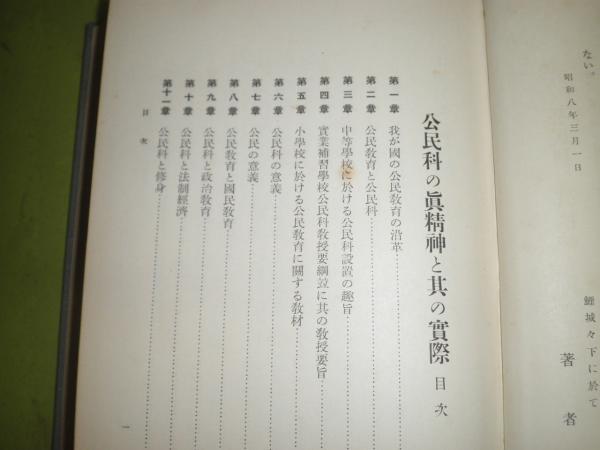 ない。
昭和八年三月一日
鯉城々下に於て
著者
公民科の眞精神と其の實際 目次
第一章 我が國の公民敎育の沿革
第二章 公民敎育と公民科
第三章 中等學校に於ける公民科設置の趣旨
第四章 實業補習學校公民科敎授要綱竝に其の敎授要旨
第五章 小學校に於ける公民敎育に關する敎材
第六章 公民科の意義
第七章 公民の意義
第八章 公民敎育と國民敎育
第九章 公民科と政治敎育
第十章 公民科と法制經濟
第十一章 公民科と修身
目次
一